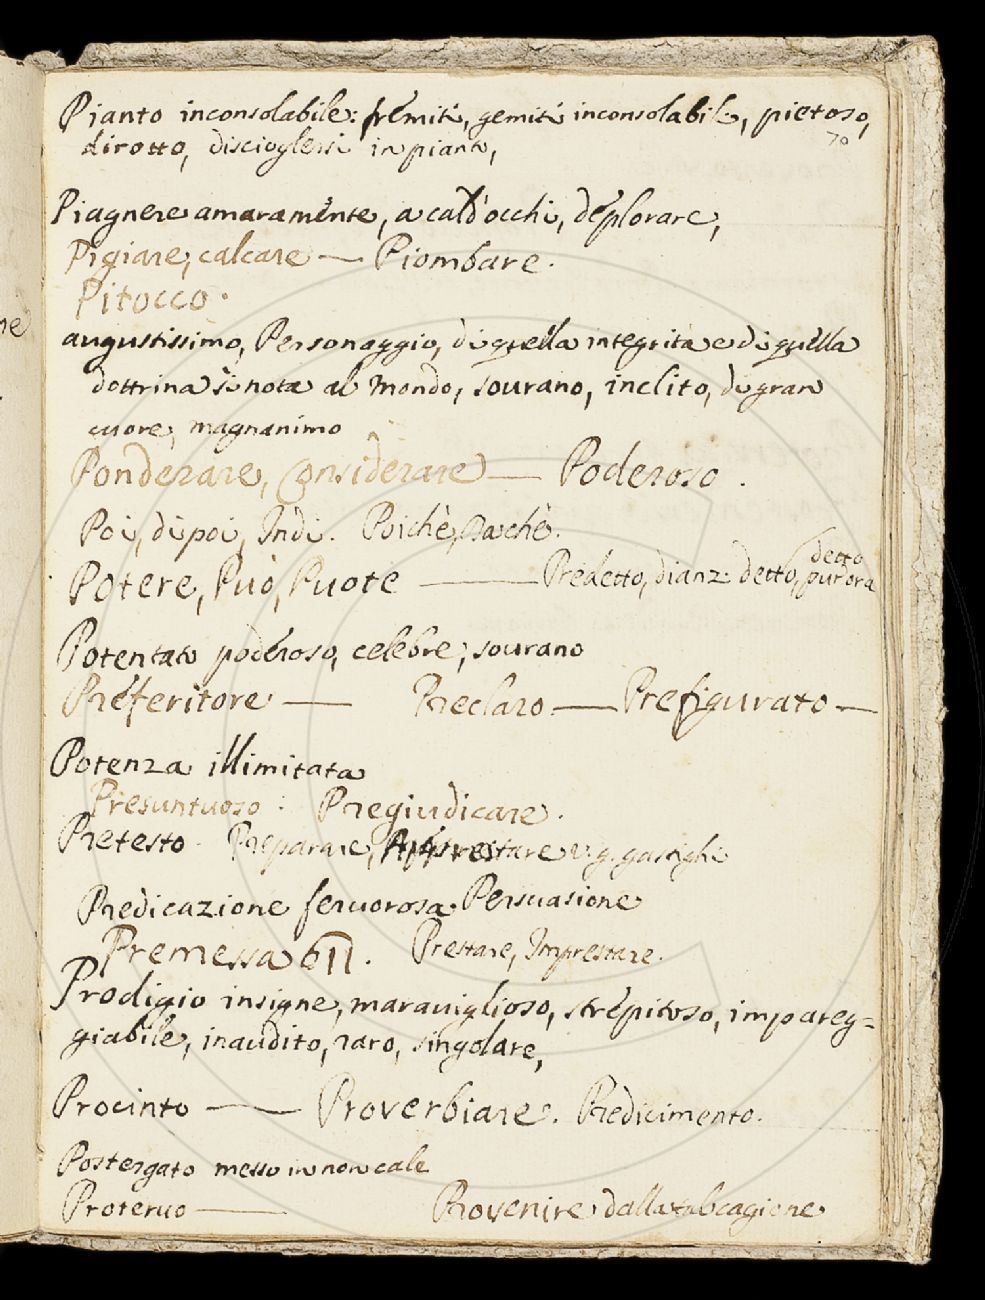 Pianto inconsolabile: fremiti, gemiti inconsolabile, pietoso,
70
dirotto, disciogliersi in pianto,
Piagnere amaramente, a cald'occhi, deplorare,
Pigiare, calcare — Piombare.
Pitocco.
augustissimo, Personaggio, di quella integrità e di quella
dottrina si nota al Mondo, sourano, inclito, di gran
cuore, magnanimo
Ponderare, Considerare — Poderoso.
Poi, dipoi, Indi. Poichè, Dachè.
detto
Potere, Può, Puote — Predetto, dianzi detto, pur ora
Potentato poderoso, celebre, sourano
Preferitore — Preclaro — Prefigurato —
Potenza illimitata
Presuntuoso: Pregiudicare.
Pretesto. Preparare, v.g. gastighi
Predicazione feruorosa Persuasione
Premessa Prestare, Imprestare.
Prodigio insigne, marauiglioso, strepitoso, impareg=
giabile, inaudito, raro, singolare,
Procinto — Proverbiare. Predicimento.
Postergato messo in non cale
Proteruo — Provenire dalla tal cagione